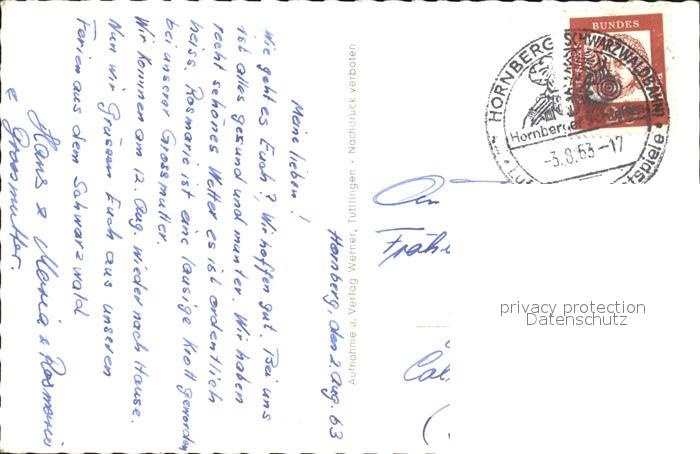 Hornberg, den 2. Aug. 63
Meine lieben!
Wie geht es Euch? Wir hoffen gut. Bei uns
ist alles gesund und munter. Wir haben
recht schönes Wetter es ist ordentlich
heiss. Rosmarie ist eine lausige Krott geworden
bei unserer Grossmutter.
Wir kommen am 12. Aug. wieder nach Hause.
Nun wir Grüssen Euch aus unseren
Ferien aus dem Schwarzwald
Hans & Maria & Rosmarie
& Grossmutter.
Aufnahme u. Verlag Werner, Tuttlingen · Nachdruck verboten
HORNBERG (SCHWARZWALDBAHN)
Hornberger
-3.8.63-17
BUNDES
privacy protection
Datenschutz